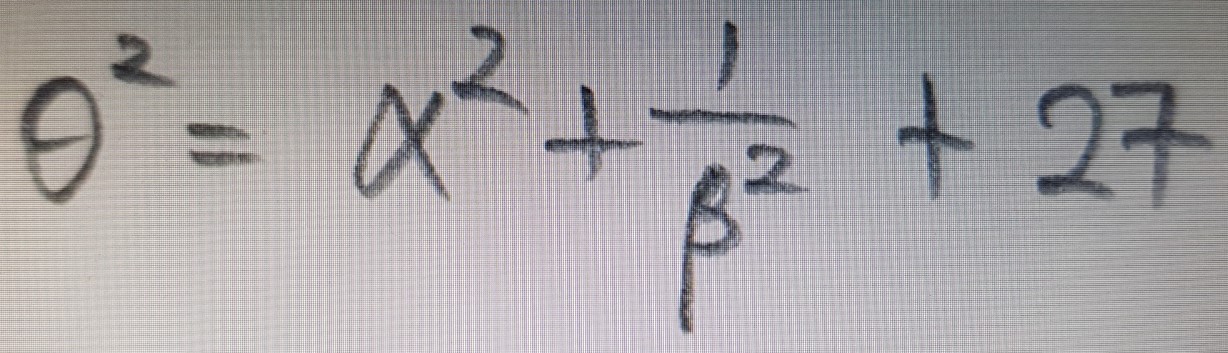 θ² = α² + 1/β² + 27